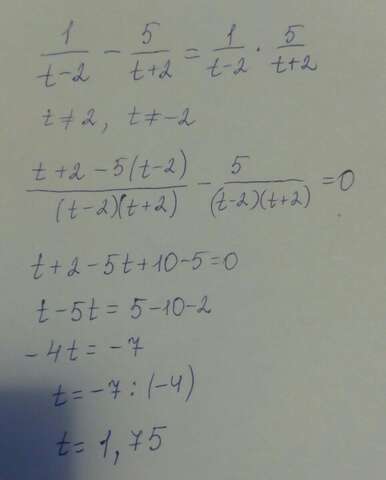 1/(t-2) - 5/(t+2) = 1/(t-2) · 5/(t+2)
t ≠ 2, t ≠ -2
(t+2-5(t-2))/((t-2)(t+2)) - 5/((t-2)(t+2)) = 0
t+2-5t+10-5=0
t-5t=5-10-2
-4t=-7
t=-7:(-4)
t=1,75